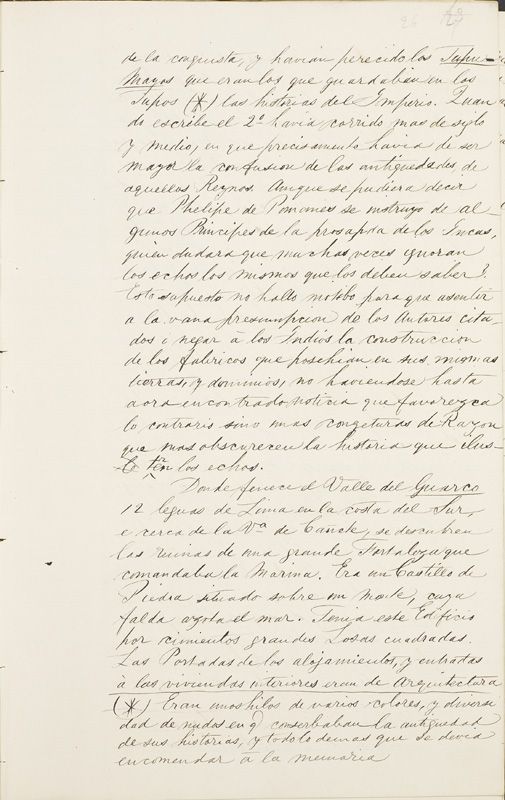 de la conquista, y havian perecido los Tupu-
Mayos que eran los que guardaban en los
Tupos (*) las historias del Imperio. Quan
do escribe el 2º havia corrido mas de siglo
y medio, en que precisamente havia de ser
mayor la confusion de las antiguedades, de
aquellos Reynos. Aunque se pudiera decir
que Phelipe de Pomones se instruyo de al-
gunos Principes de la prosapia de los Incas,
quien dudara que muchas veces ignoran
los echos los mismos que los deben saber?
Esto supuesto no hallo motibo para que asentir
a la vana presumpcion de los Autores cita-
dos i negar à los Indios la construccion
de los fabricos que poschian en sus mismas
tierras, y dominios, no haviendose hasta
aora encontrado noticia que favorezca
lo contrario sino mas congeturas de Razon
que mas obscurecen la historia que ilus-
tren los echos.
Donde fenece el Valle del Guarco
12 leguas de Lima en la costa del Sur,
e cerca de la Vª de Cañete, se descubren
las ruinas de una grande Fortaleza que
comandaba la Marina. Era un Castillo de
Piedra situado sobre un monte, cuya
falda azota el mar. Tenia este Edificio
por cimientos grandes Losas cuadradas.
Las Portadas de los alojamientos, y entradas
à las viviendas interiores eran de Arquitectura
(*) Eran unos hilos de varios colores, y diversi
dad de nudos en q conserbaban la antiguedad
de sus historias, y todo lo demas que se devia
encomendar à la memoria